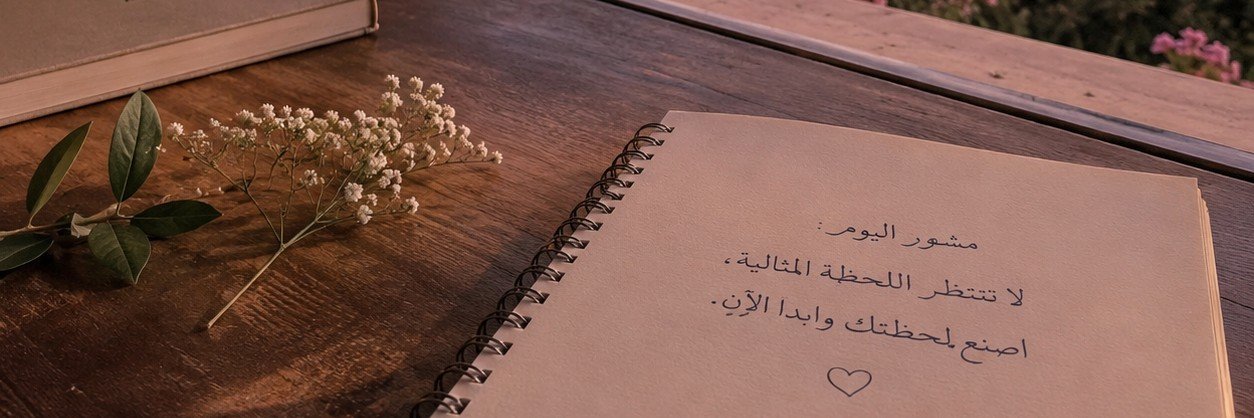 مشور اليوم:
لا تنتظر اللحظة المثالية،
اصنع لحظتك وابدا الآن.